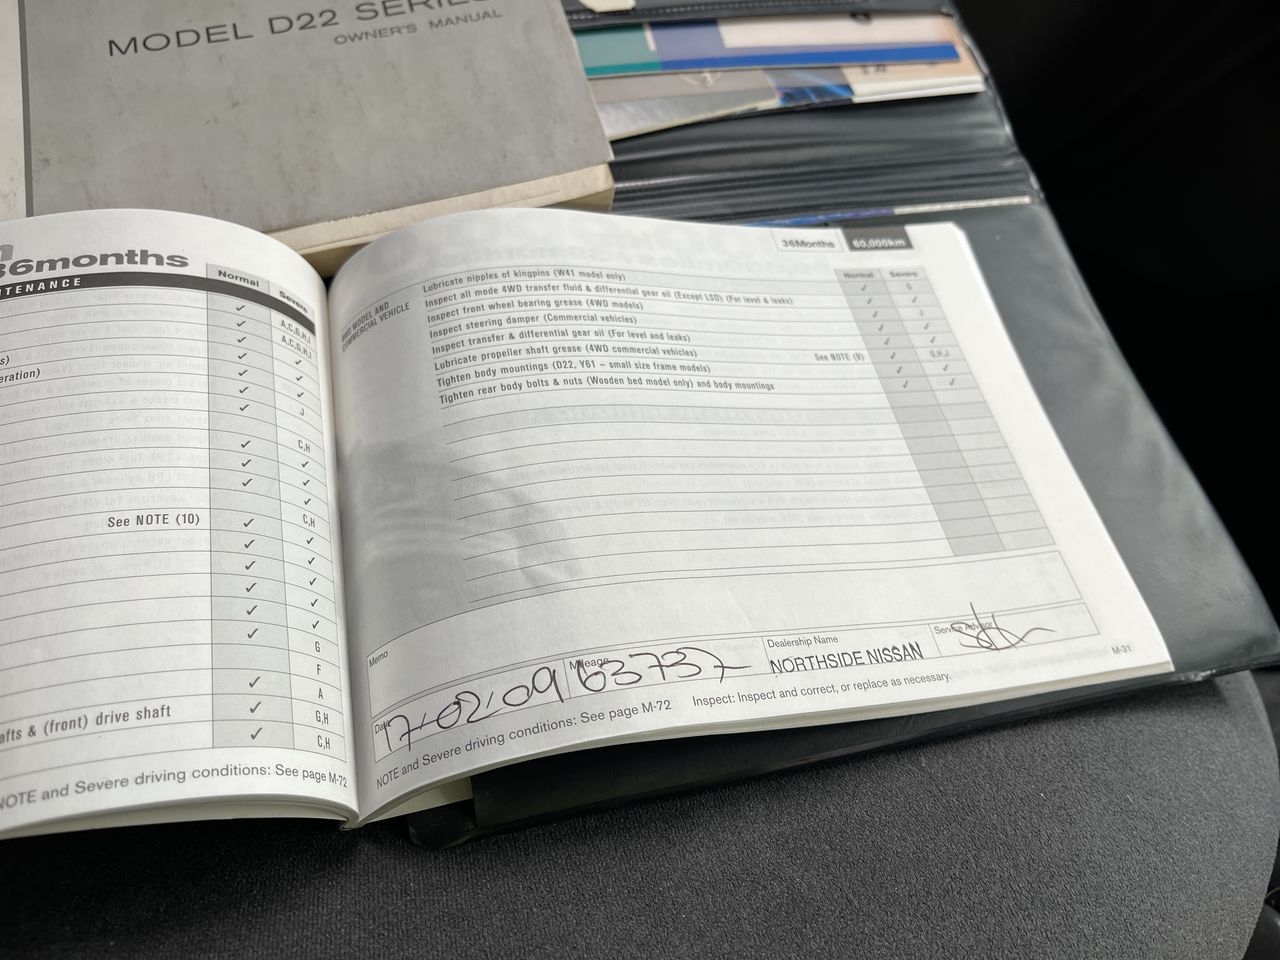 MODEL D22 SERIES
OWNER'S MANUAL
36months
Normal Severe
✓ A,C,G,H,J
✓ A,C,G,H,J
✓ ✓
✓ ✓
✓ ✓
✓ J
✓ C,H
✓ ✓
✓ ✓
See NOTE (10) ✓ C,H
✓ ✓
✓ ✓
✓ ✓
✓ ✓
✓ G
F
✓ A
afts & (front) drive shaft ✓ G,H
✓ C,H
NOTE and Severe driving conditions: See page M-72
36Months 60,000km
Normal Severe
4WD MODEL AND
COMMERCIAL VEHICLE
Lubricate nipples of kingpins (W41 model only) ✓
Inspect all mode 4WD transfer fluid & differential gear oil (Except LSD) (For level & leaks) ✓ ✓
Inspect front wheel bearing grease (4WD models) ✓ J
Inspect steering damper (Commercial vehicles) ✓ ✓
Inspect transfer & differential gear oil (For level and leaks) ✓ ✓
Lubricate propeller shaft grease (4WD commercial vehicles) See NOTE (9) ✓ G,H,J
Tighten body mountings (D22, Y61 – small size frame models) ✓ ✓
Tighten rear body bolts & nuts (Wooden bed model only) and body mountings ✓ ✓
Memo
Date 17-02-09 Mileage 63737 Dealership Name NORTHSIDE NISSAN Service Advisor
NOTE and Severe driving conditions: See page M-72 Inspect: Inspect and correct, or replace as necessary.
M-31